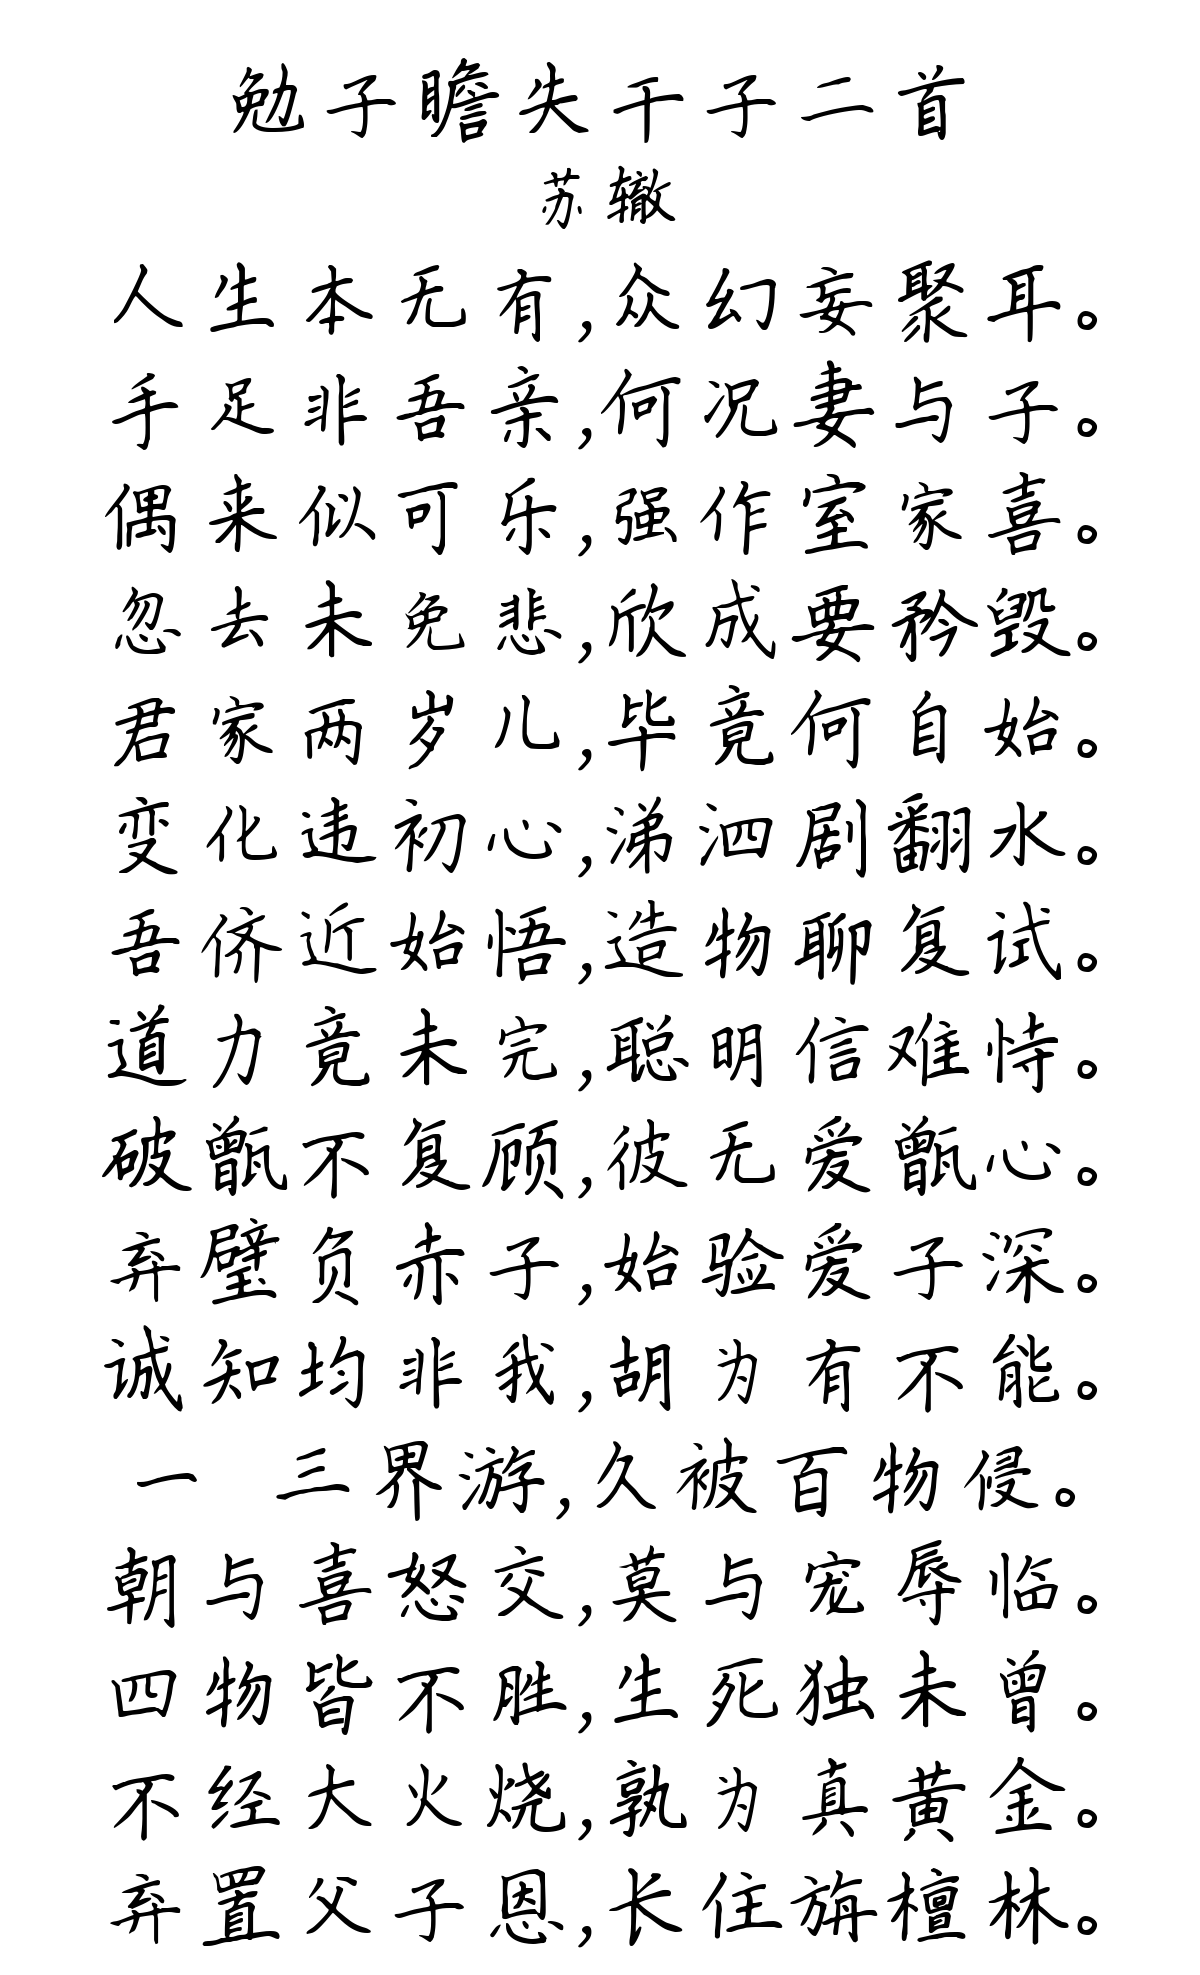 勉子瞻失干子二首
苏辙
人生本无有,众幻妄聚耳。
手足非吾亲,何况妻与子。
偶来似可乐,强作室家喜。
忽去未免悲,欣成要矜毁。
君家两岁儿,毕竟何自始。
变化违初心,涕泗剧翻水。
吾侪近始悟,造物聊复试。
道力竟未完,聪明信难恃。
破甑不复顾,彼无爱甑心。
弃璧负赤子,始验爱子深。
诚知均非我,胡为有不能。
一 三界游,久被百物侵。
朝与喜怒交,莫与宠辱临。
四物皆不胜,生死独未曾。
不经大火烧,孰为真黄金。
弃置父子恩,长住旃檀林。